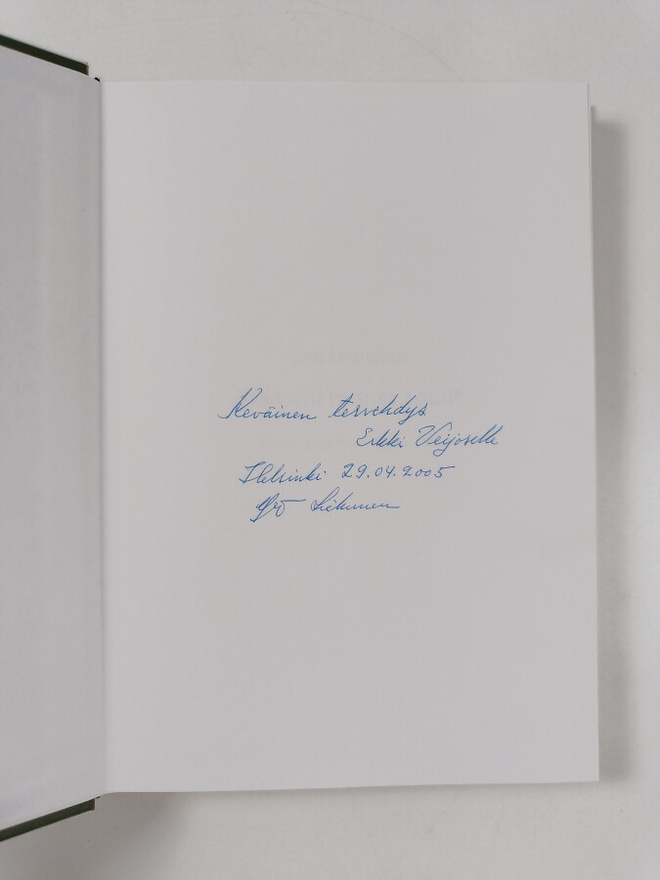 Keväinen tervehdys
Erkki Veijoselle
Helsinki 29.04.2005